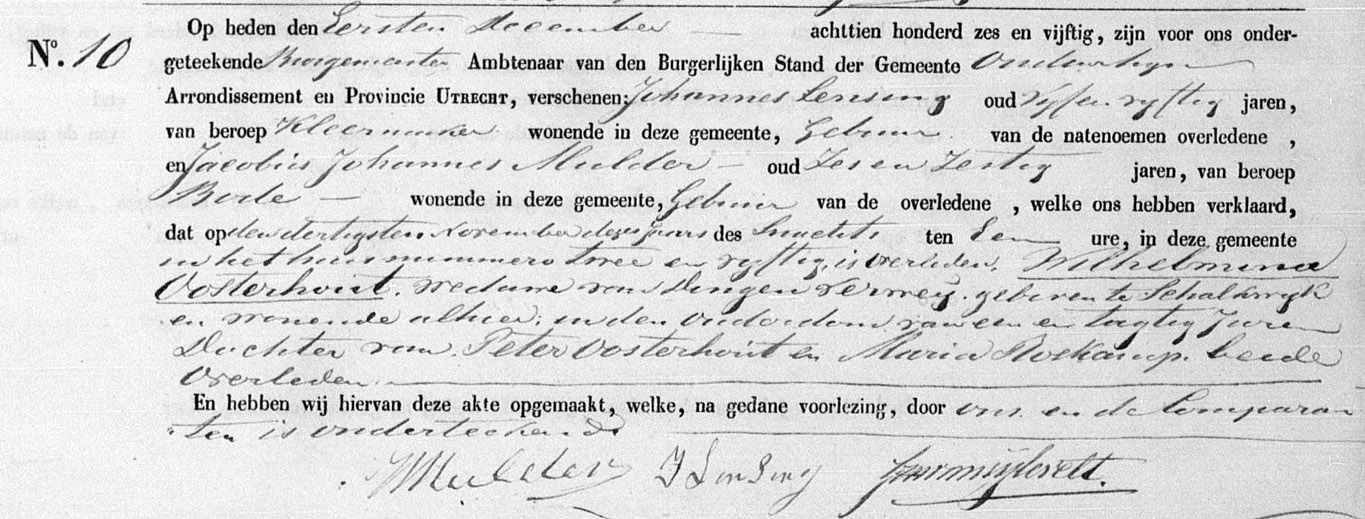 Op heden den Eersten December — achttien honderd zes en vijftig, zijn voor ons onder-
N.º 10 geteekende Burgemeester Ambtenaar van den Burgerlijken Stand der Gemeente
Arrondissement en Provincie UTRECHT, verschenen: Johannes Lensing oud Vyf en vyftig jaren,
van beroep Kleermaker wonende in deze gemeente, Gebuur van de natenoemen overledene ,
en Jacobus Johannes Mulder — oud Zes en Zestig jaren, van beroep
Bode — wonende in deze gemeente, Gebuur van de overledene , welke ons hebben verklaard,
dat op den dertigsten November dezes Jaars des Snachts ten Een ure, in deze gemeente
in het huis nummero twee en vyftig, is overleden, Wilhelmina
Oosterhout, weduwe van Dirgen Verweij, geboren te Schalkwyk
en wonende alhier, in den ouderdom van een en tagtig Jaren
Dochter van Peter Oosterhout en Maria Roskamp, beide
Overleden
En hebben wij hiervan deze akte opgemaakt, welke, na gedane voorlezing, door ons en de Comparan
ten is onderteekend
JJMulder J Lensing